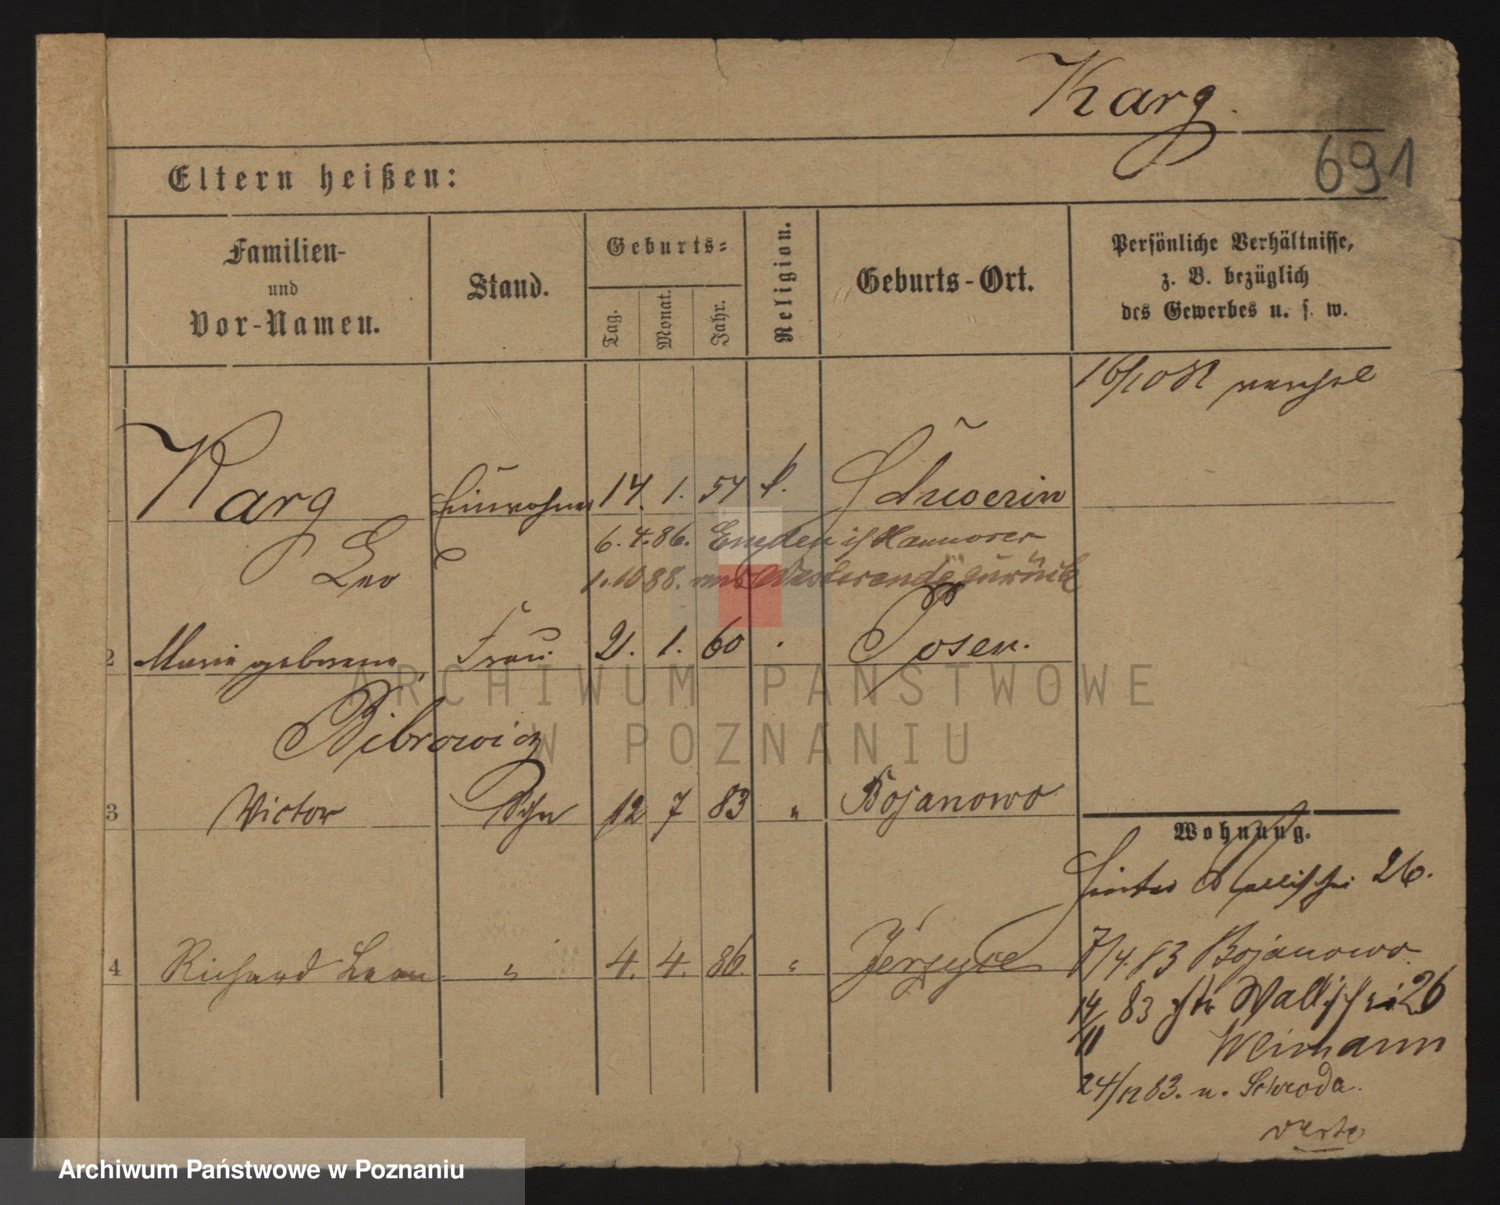 Karg.
691
Eltern heißen:
Familien-
und
Vor-Namen.
Stand.
Geburts-
Tag.
Monat.
Jahr.
Religion.
Geburts-Ort.
Persönliche Verhältnisse,
z. B. bezüglich
des Gewerbes u. s. w.
Karg Einwohner 14. 1. 54 k. Schwerin
6. 4. 86. Emden Hannover
Leo
1. 10 88. zurück
2 Marie geborene Frau 21. 1. 60 Posen.
Bibrowicz
3 Victor Sohn 12 7 83 " Bojanowo
Wohnung.
Hinter Wallischei 26.
4 Richard Leon " 4. 4. 86. " Jerzyce
7/4. 83 Bojanowo.
14/11 83 Wallischei 26
Weimann
24/12 83. n. Schroda.
verte
ARCHIWUM PAŃSTWOWE
W POZNANIU
Archiwum Państwowe w Poznaniu